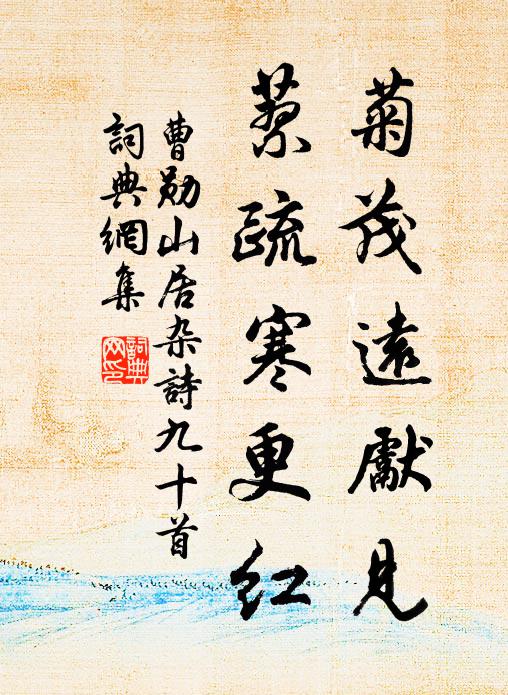 菊茂遠獻見
疏寒更紅
曹勛山居杂詩九十首
詞典網集
詞典网印